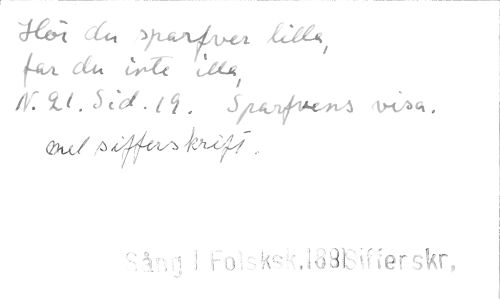 Hör du sparfver lilla,
far du inte illa,
N. 21. Sid. 19. Sparfvens visa.
mel sifferskrift.
Sång i Folsksk. 1881 Sifferskr,